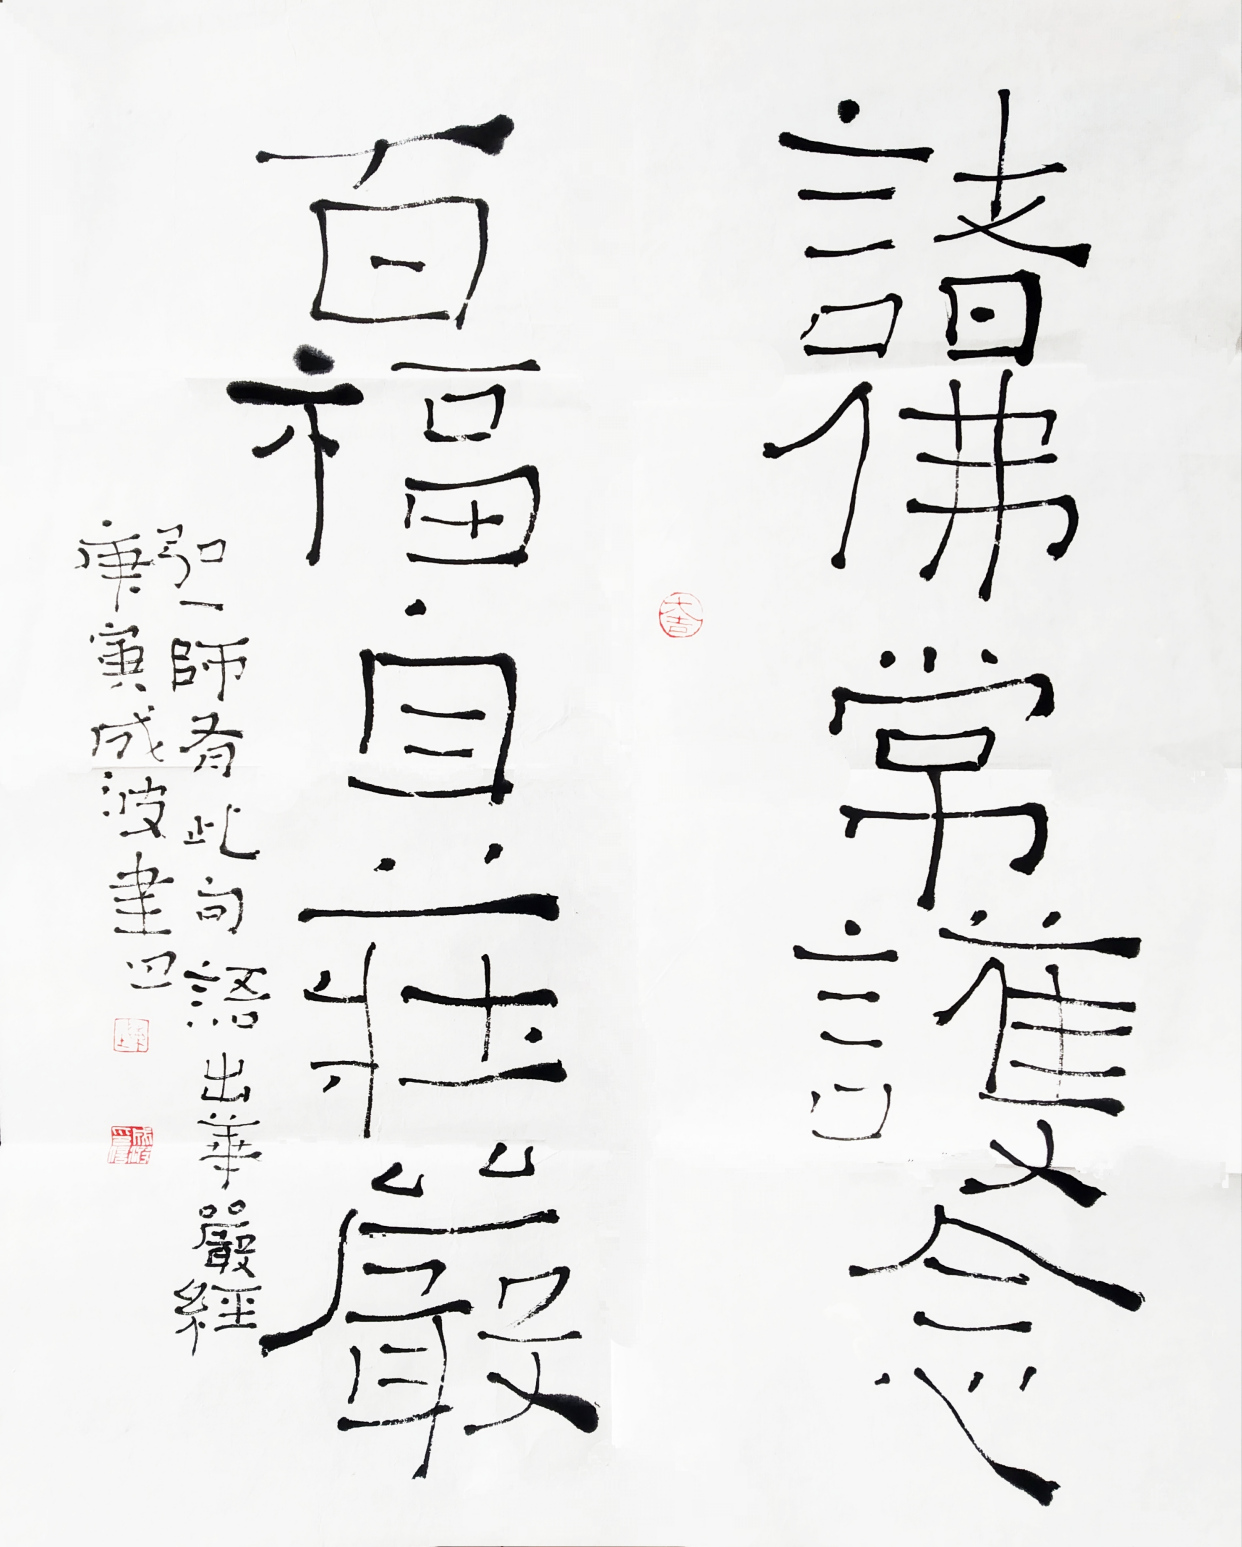 諸佛常護念
百福自莊嚴
弘一師有此句語出華嚴經
庚寅成波書
大吉